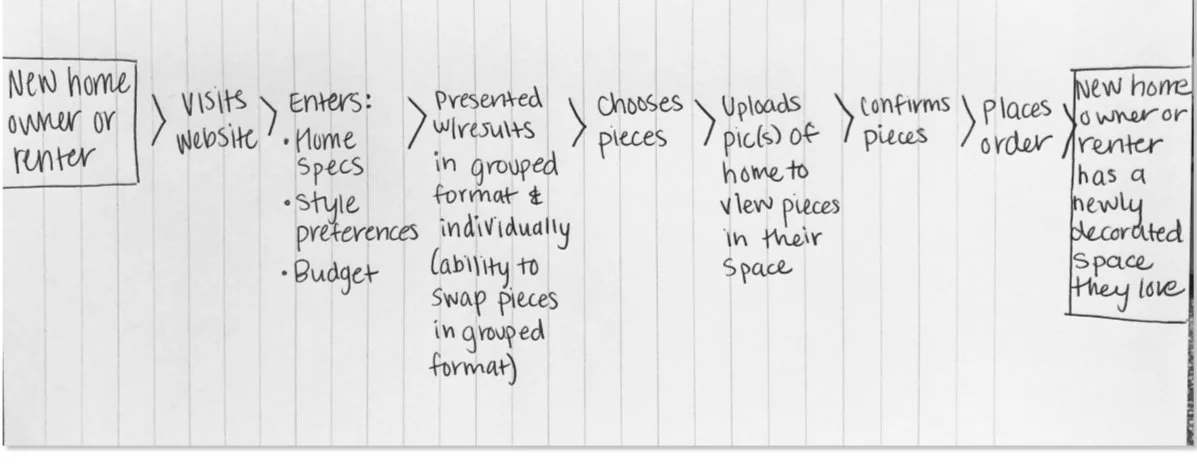 New home
owner or
renter
> visits
website
> Enters:
• Home
specs
• style
preferences
• Budget
> Presented
w/results
in grouped
format &
individually
(ability to
swap pieces
in grouped
format)
> chooses
pieces
> uploads
pic(s) of
home to
view pieces
in their
space
> confirms
pieces
> Places
order
> New home
owner or
renter
has a
newly
decorated
space
they love